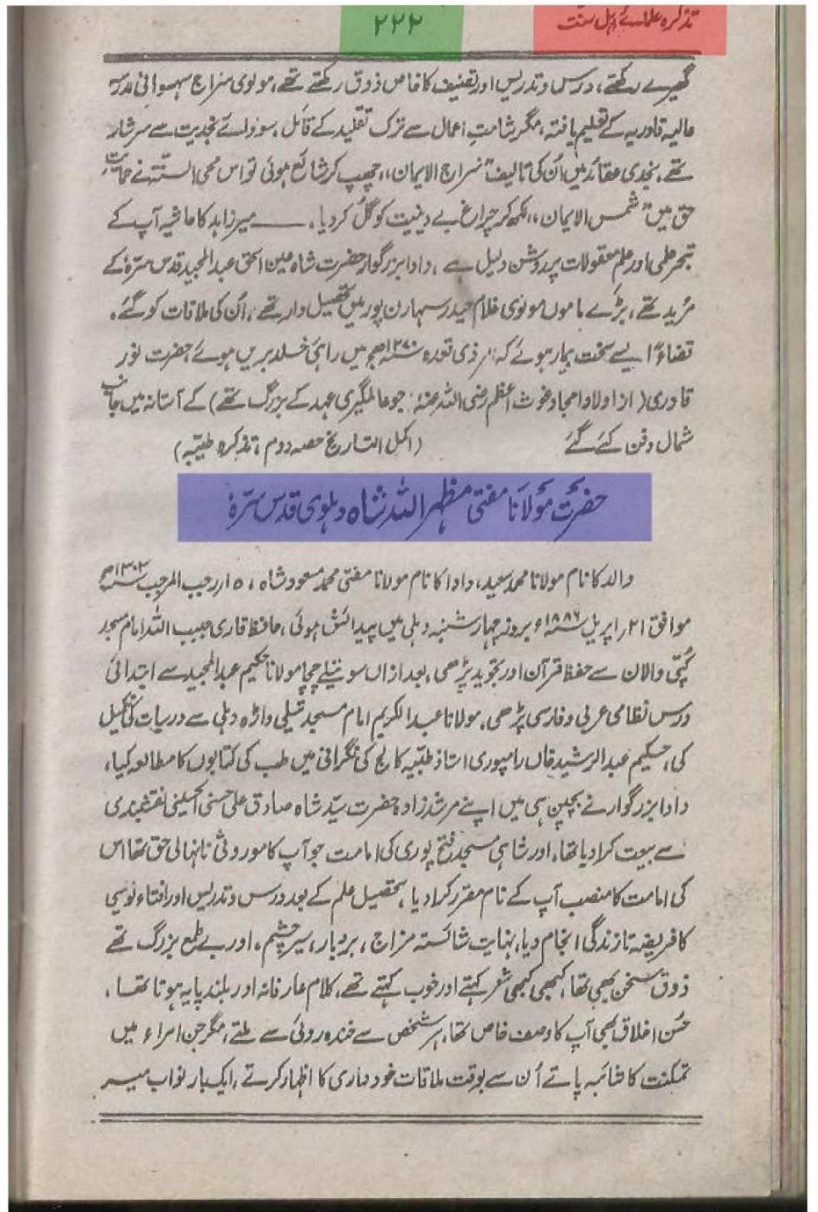 تذکرہ علمائے اہل سنت
۲۲۲
گھیرے رکھتے، درس و تدریس اور تصنیف کا خاص ذوق رکھتے تھے، مولوی سراج سہسوانی مدرسہ
عالیہ قادریہ کے تعلیم یافتہ، مگر شامتِ اعمال سے ترک تقلید کے قائل، سودائے نجدیت سے سرشار
تھے، نجدی عقائد میں اُن کی تالیف "سراج الایمان،، چھپ کر شائع ہوئی تو اس محی السنۃ نے حمایتِ
حق میں "شمس الایمان،، لکھ کر چراغ بے دینیت کو گُل کر دیا، ــــ میر زاہد کا حاشیہ آپ کے
تبحر علمی اور علم معقولات پر روشن دلیل ہے، دادا بزرگوار حضرت شاہ عین الحق عبدالمجید قدس سرّہٗ کے
مُرید تھے، بڑے ماموں مولوی غلام حیدر سہارن پور میں تحصیل دار تھے، اُن کی ملاقات کو گئے،
قضاءً ایسے سخت بیمار ہوئے کہ ذی قعدہ ۱۲۷۰ھ میں راہیٔ خلد بریں ہوئے حضرت نور
قادری (از اولاد امجاد غوث اعظم رضی اللہ عنہٗ جو عالمگیری عہد کے بزرگ تھے) کے آستانہ میں جانب
شمال دفن کئے گئے (اکمل التاریخ حصہ دوم، تذکرہ طیبہ)
حضرت مولانا مفتی مظہر اللہ شاہ دہلوی قدس سرّہٗ
والد کا نام مولانا محمد سعید، دادا کا نام مولانا مفتی محمد مسعود شاہ، ۱۵ رجب المرجب ۱۳۰۳ھ
موافق ۲۱ اپریل ۱۸۸۶ء بروز چہار شنبہ دہلی میں پیدائش ہوئی، حافظ قاری حبیب اللہ امام مسجد
کپّی والان سے حفظ قرآن اور تجوید پڑھی، بعد ازاں سوتیلے چچا مولانا حکیم عبدالمجید سے ابتدائی
درس نظامی عربی و فارسی پڑھی، مولانا عبدالکریم امام مسجد تیلی واڑہ دہلی سے دریات کی تکمیل
کی، حکیم عبدالرشید خاں رامپوری استاذ طبّیہ کالج کی نگرانی میں طب کی کتابوں کا مطالعہ کیا،
دادا بزرگوار نے بچپن ہی میں اپنے مرشد زادہ حضرت سیّد شاہ صادق علی حسنی الحسینی نقشبندی
سے بیعت کرا دیا تھا، اور شاہی مسجد فتح پوری کی امامت جو آپ کا موروثی نانہالی حق تھا اس
کی امامت کا منصب آپ کے نام مقرر کرا دیا، تحصیل علم کے بعد درس و تدریس اور افتاء نویسی
کا فریضہ تا زندگی انجام دیا، نہایت شائستہ مزاج، بردبار، سیر چشم، اور بے طمع بزرگ تھے
ذوق سخن بھی تھا، کبھی کبھی شعر کہتے اور خوب کہتے تھے، کلام عارفانہ اور بلند پایہ ہوتا تھا،
حُسن اخلاق بھی آپ کا وصف خاص تھا، ہر شخص سے خندہ روئی سے ملتے، مگر جن امراء میں
تمکنت کا شائبہ پاتے اُن سے بوقت ملاقات خود داری کا اظہار کرتے، ایک بار نواب میر